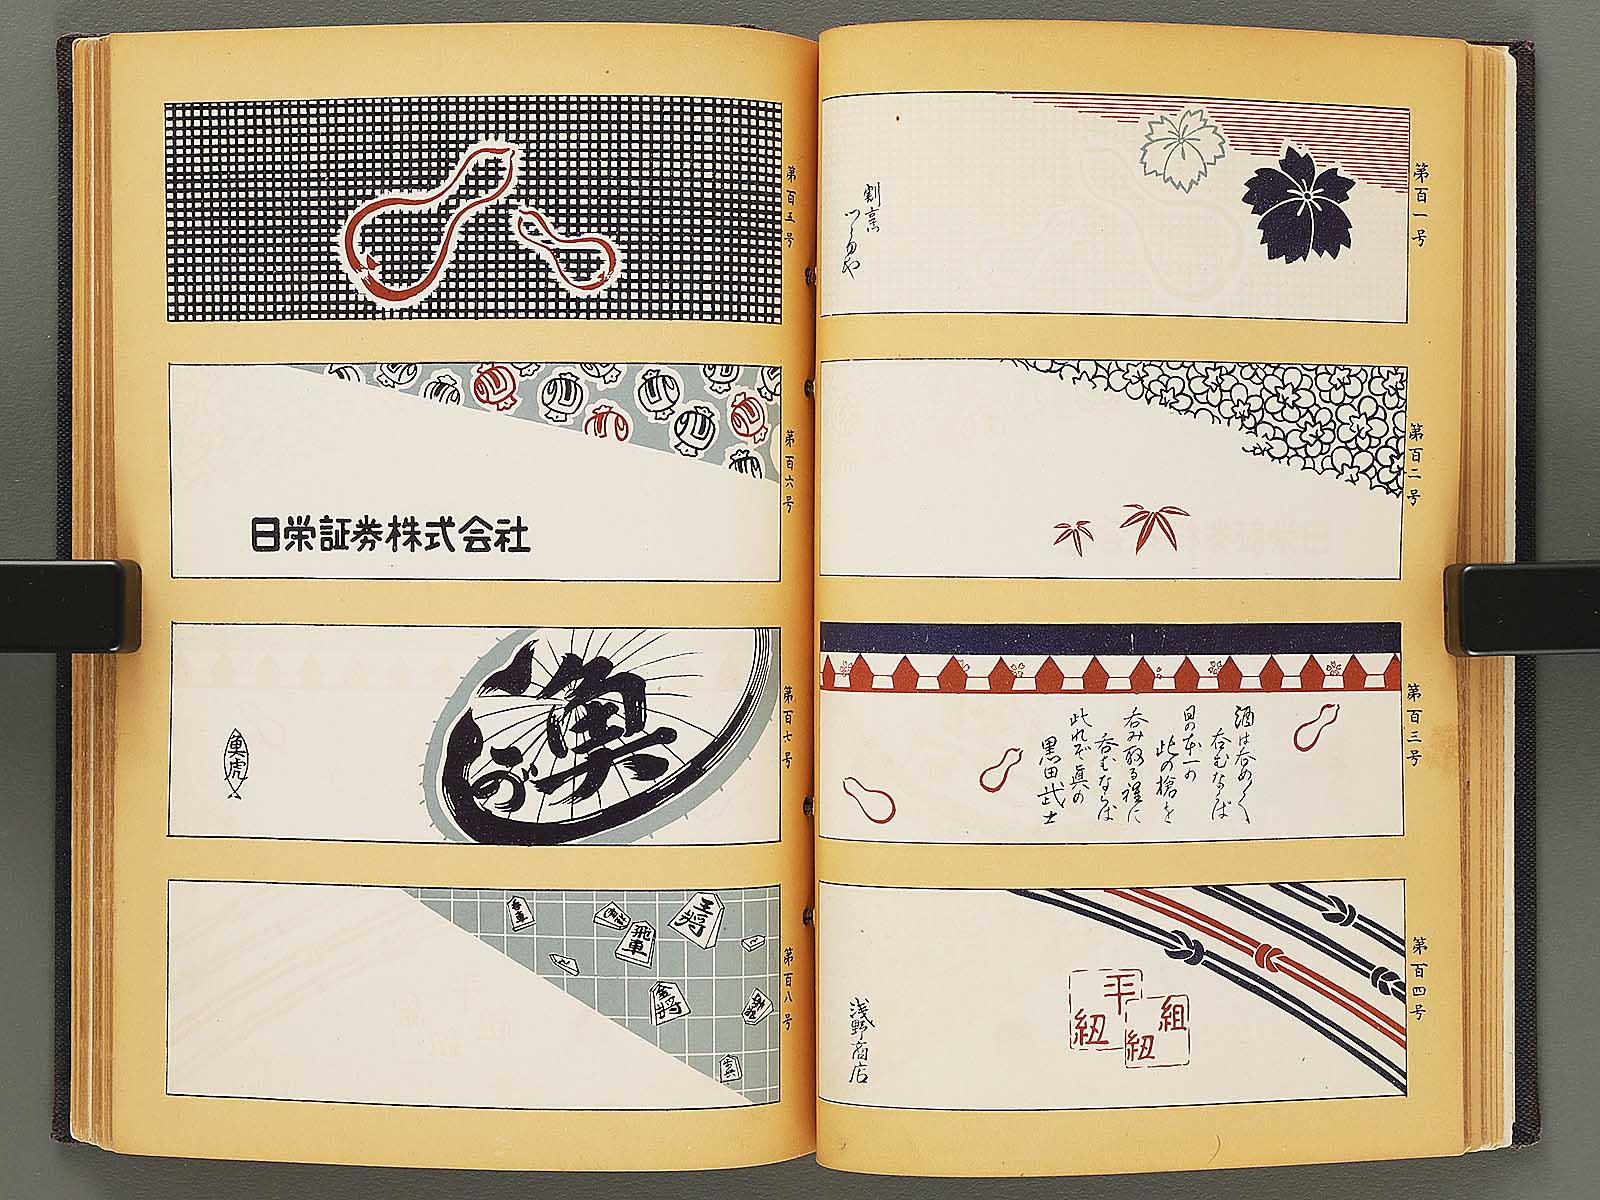 第百一号
割烹
つるや
第百二号
第百三号
酒は呑め〱
呑むならば
日の本一の
此の槍を
呑み取る程に
呑むならば
此れぞ真の
黒田武士
第百四号
平紐
組紐
浅野商店
第百五号
第百六号
日栄証券株式会社
第百七号
魚
魚虎
第百八号
王将
飛車
香車
金将
歩兵